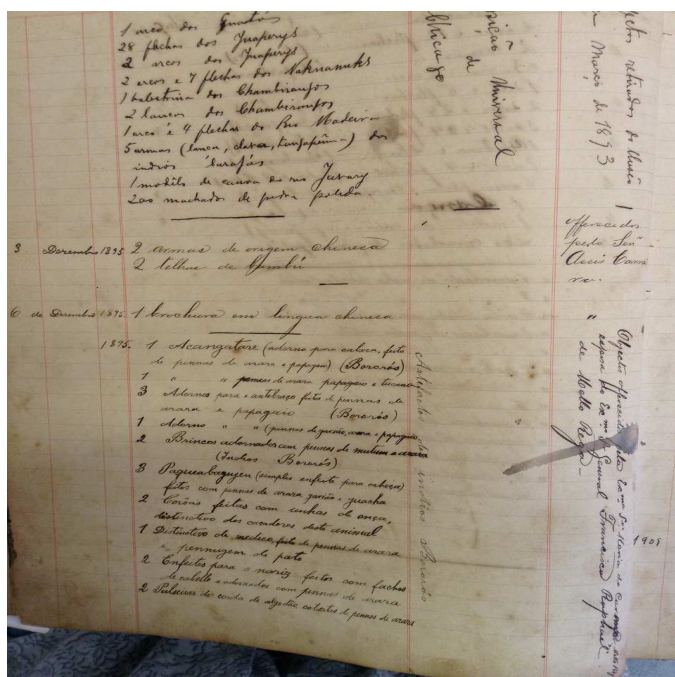 1 arco dos Guatós
28 flechas dos Juaperys
2 arcos dos Juaperys
2 arcos e 7 flechas dos Naknanuks
1 dos Chambiroufos
2 lanças dos Chambiroufos
1 arco e 4 flechas do Rio Madeira
5 armas (lança, clava, ) dos
indios Carajás
1 modelo de canoa do rio Javary
200 machados de pedra polida.
sição Universal
de
Chicago
jectos retirados do Museu
Março de 1893
3 Dezembro 1895 2 armas de origem chineza
2 telhas de bambú
offerecidos
pelo Snr
Assis
6 de Dezembro 1895 1 brochura em lingua chineza
"
1895. 1 Acangatare (adorno para cabeça, feito
de pennas de arara e papagaio) (Bororós)
1 " " pennas de arara papagaio e tucano
3 Adornos para o antebraço feitos de pennas de
arara e papagaio (Bororós)
1 Adorno " " (pennas de gavião, arara e papagaio)
2 Brincos adornados com pennas de mutum e arara
(Indios Bororós)
3 (simples enfeite para cabeça)
feitos com pennas de arara gavião e guacha
2 Corôas feitas com unhas de onça,
distinctivo dos caçadores deste animal
1 Distinctivo de medico, feito de pennas de arara
e pennugem de pato
2 Enfeites para o nariz feitos com fachos
de cabello e adornados com pennas de arara
2 Pulseiras de corda de algodão cobertas de pennas de arara
Artefactos dos indios Bororós
Objectos offerecidos pela Exma Sra Maria do Carmo
esposa do Exmo General Francisco Raphael
de Mello Rego
1908